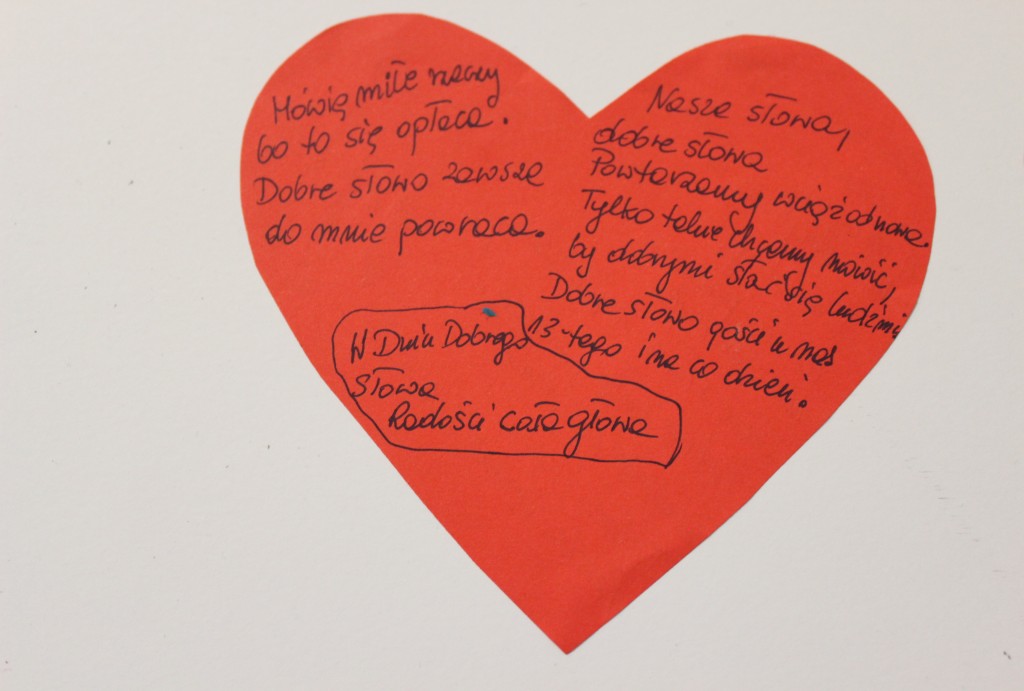 Mówię miłe rzeczy
bo to się opłaca.
Dobre słowo zawsze
do mnie powraca.
Nasze słowa,
dobre słowa
Powtarzamy wciąż od nowa.
Tylko takie chcemy mówić,
by dobrymi stać się ludźmi,
Dobre słowo gości u nas
13-tego i na co dzień.
W Dniu Dobrego
Słowa
Radości cała głowa